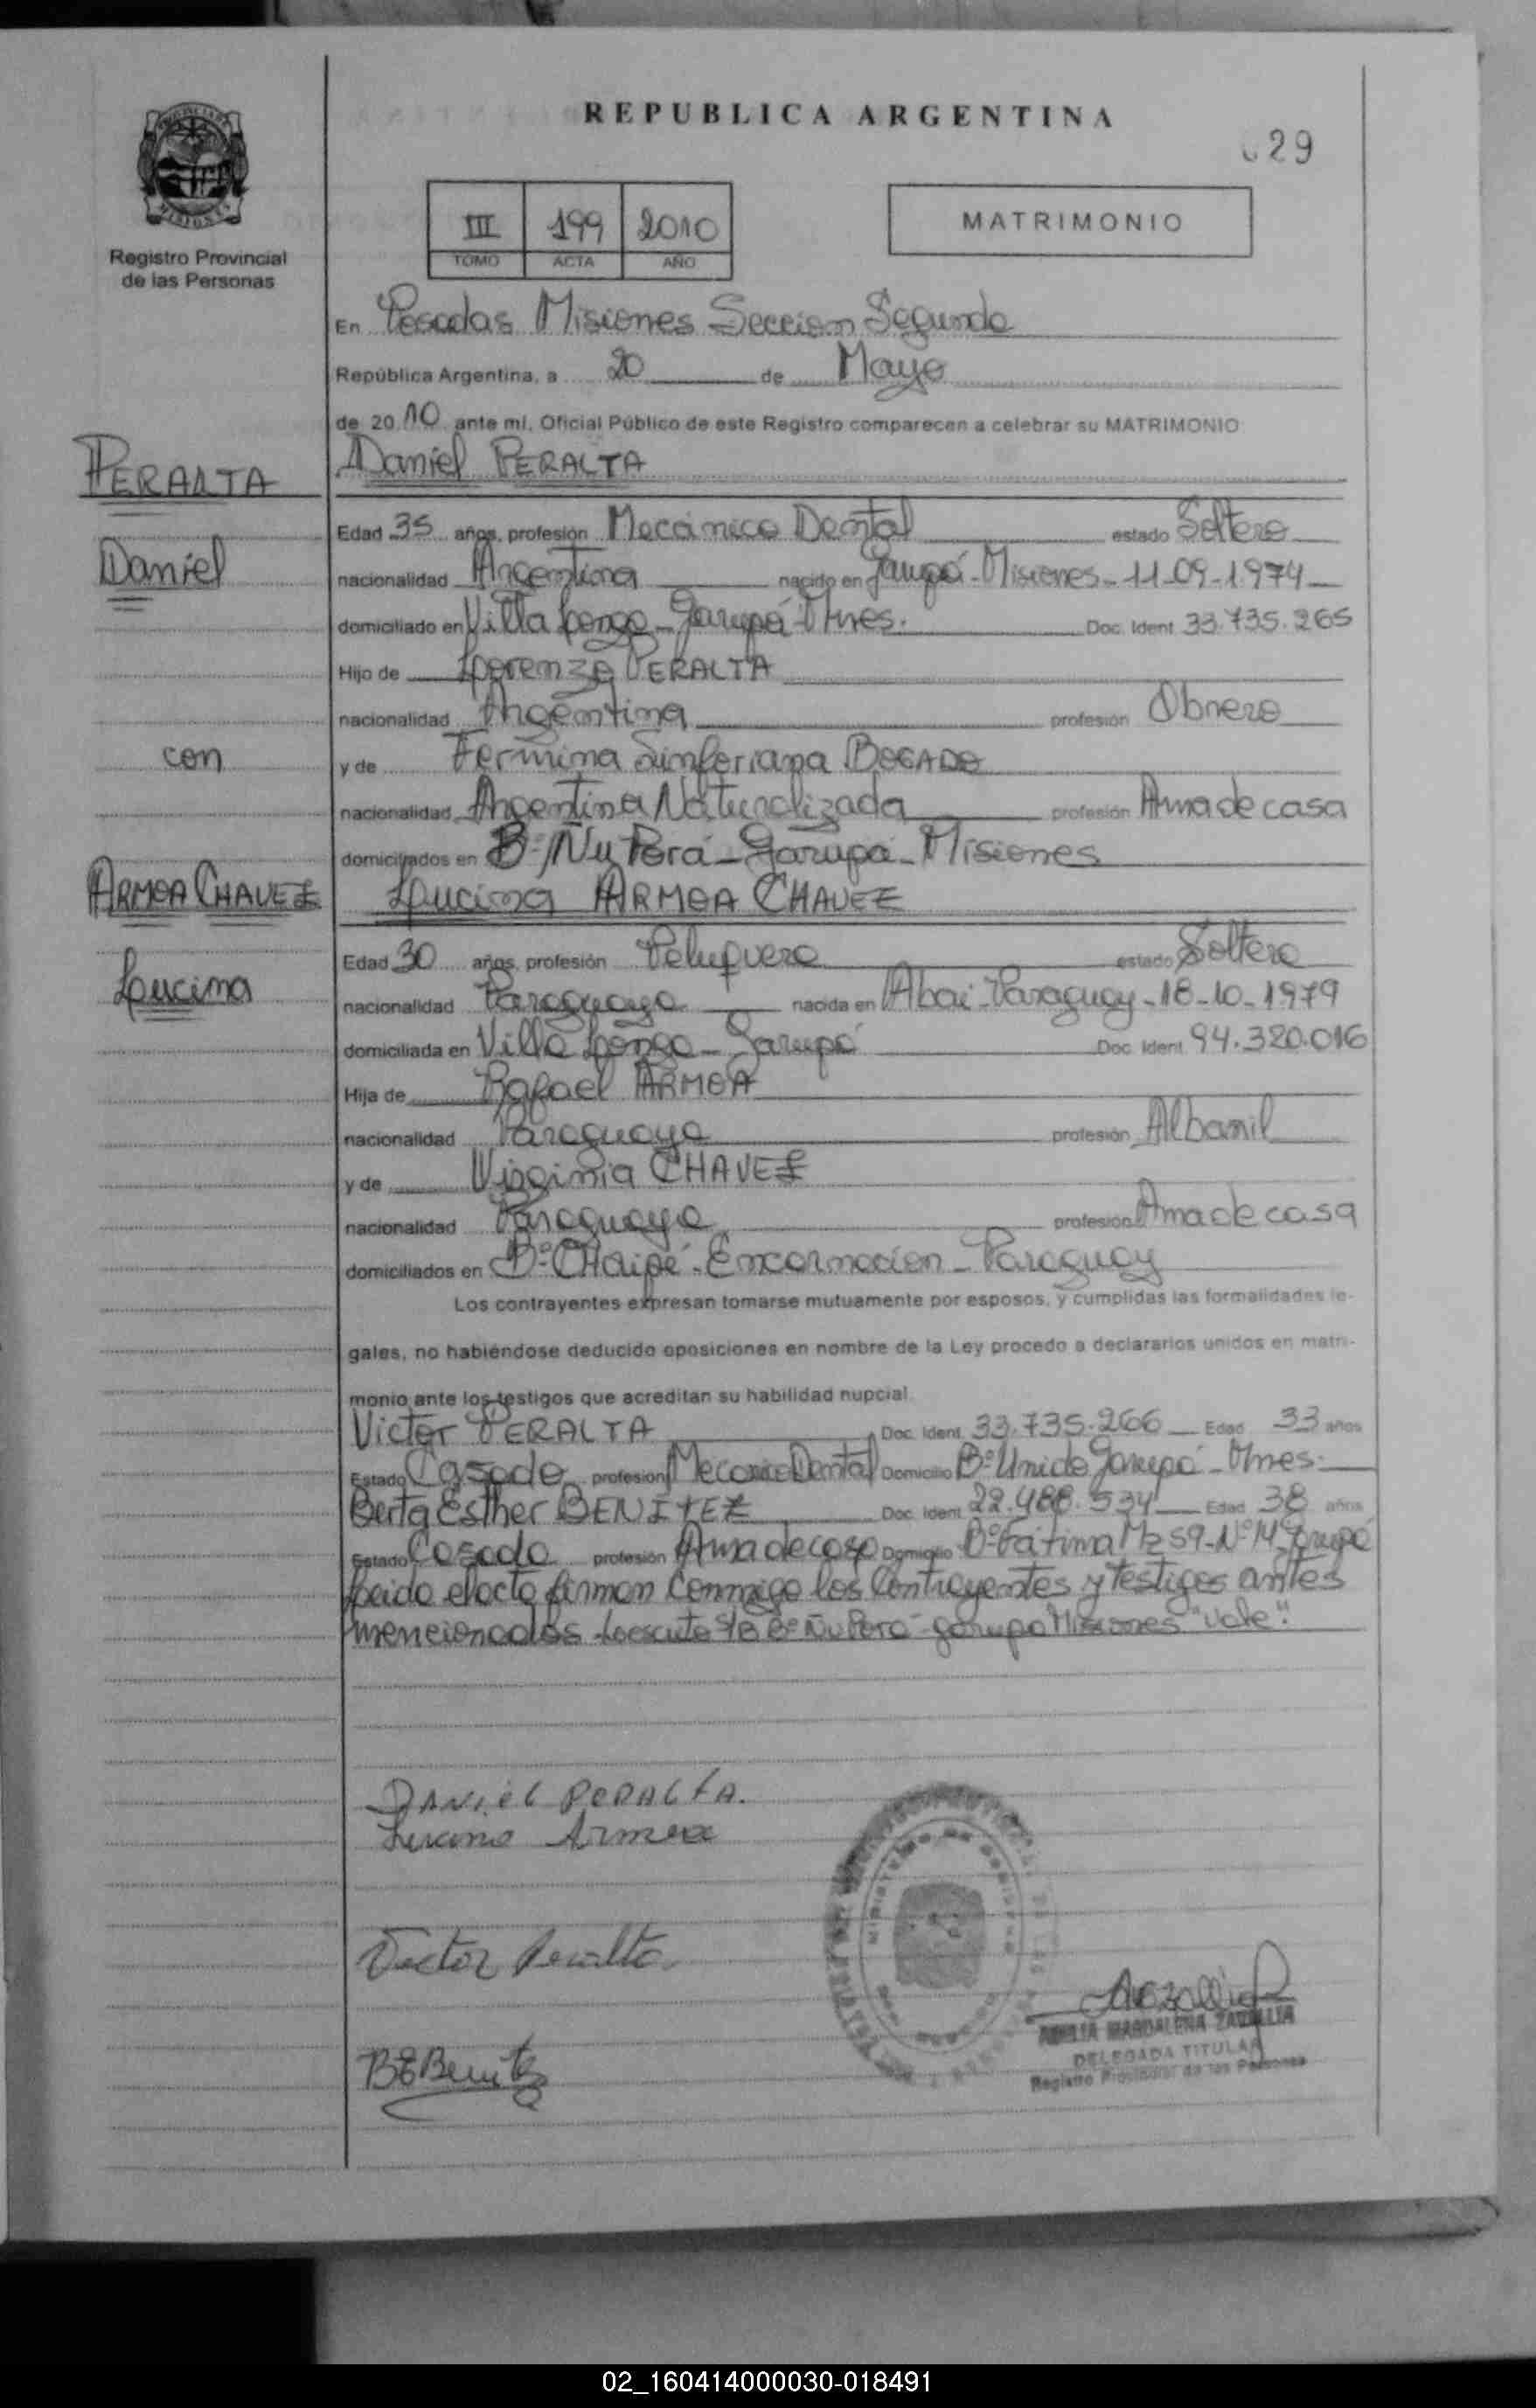 REPUBLICA ARGENTINA
29
Registro Provincial
de las Personas
III 199 2010
TOMO ACTA AÑO
MATRIMONIO
En Posadas Misiones Seccion Segunda
República Argentina, a 20 de Mayo
de 2010 ante mí, Oficial Público de este Registro comparecen a celebrar su MATRIMONIO
PERALTA
Daniel PERALTA
Edad 35 años, profesión Mecánico Dental estado Soltero
Daniel
nacionalidad Argentina nacido en Garupá-Misiones-11-09-1974
domiciliado en Villa Longa-Garupá-Mnes. Doc. Ident. 33.735.265
Hijo de Lorenzo PERALTA
nacionalidad Argentina profesión Obrero
con
y de Fermina Sinforiana BOGADO
nacionalidad Argentina Naturalizada profesión Ama de casa
domiciliados en B° Ñu Porá-Garupá-Misiones
ARMOA CHAVEZ
Lucina ARMOA CHAVEZ
Edad 30 años, profesión Peluquera estado Soltera
Lucina
nacionalidad Paraguaya nacida en Abai-Paraguay-18-10-1979
domiciliada en Villa Longa-Garupá Doc. Ident. 94.320.016
Hija de Rafael ARMOA
nacionalidad Paraguaya profesión Albanil
y de Virginia CHAVEZ
nacionalidad Paraguaya profesión Ama de casa
domiciliados en B° CHaipé-Encarnacion-Paraguay
Los contrayentes expresan tomarse mutuamente por esposos, y cumplidas las formalidades le-
gales, no habiéndose deducido oposiciones en nombre de la Ley procedo a declararlos unidos en matri-
monio ante los testigos que acreditan su habilidad nupcial
Victor PERALTA Doc. Ident. 33.735.266 Edad 33 años
Estado Casado profesión Mecanico Dental Domicilio B° Unido Garupá-Mnes.
Berta Esther BENITEZ Doc. Ident. 22.488.534 Edad 38 años
Estado Casada profesión Ama de casa Domicilio B° Fátima Mz 59-N° 14-Garupá
Leido el acto firman conmigo los Contrayentes y Testigos antes
mencionados Lo escrito S/B B° Ñu Porá-Garupa Misiones "Vale".
DANIEL PERALTA.
Lucina Armoa
Victor Peralta
BEBenitez
AMELIA MAGDALENA
DELEGADA TITULAR
Registro Provincial de las Personas
02_160414000030-018491